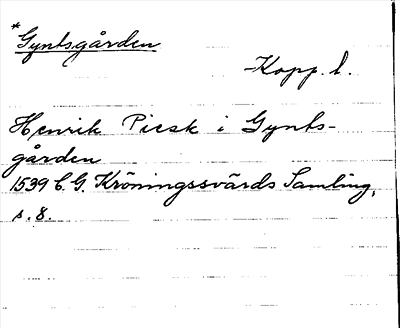 *
Gyntsgården
Kopp. l.
Henrik Picsk i Gynts-
gården
1539 C. G. Kröningssvärds Samling,
s. 8.